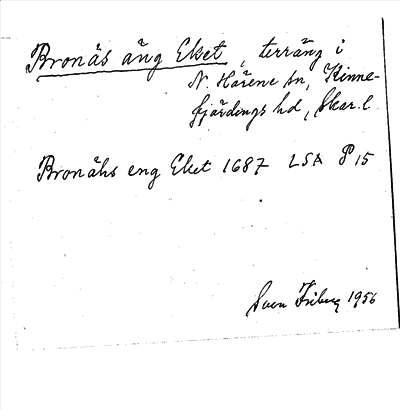 Bronäs äng Eket, terräng i
N. Härene sn, Kinne-
fjärdings hd, Skar. l.
Bronähs eng Eket 1687 LSA P 15
Sven Friberg 1956